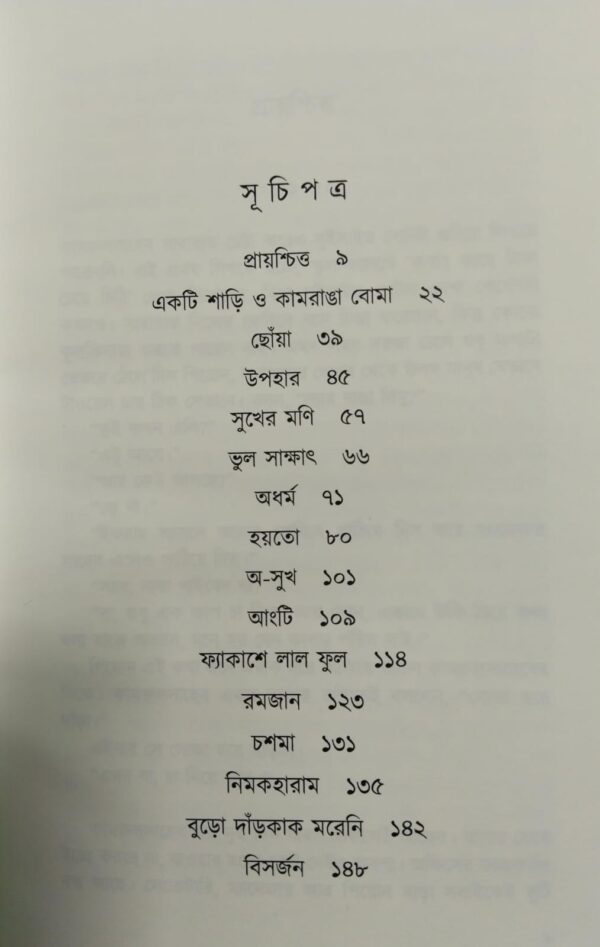 সূ চি প ত্র
প্রায়শ্চিত্ত ৯
একটি শাড়ি ও কামরাঙা বোমা ২২
ছোঁয়া ৩৯
উপহার ৪৫
সুখের মণি ৫৭
ভুল সাক্ষাৎ ৬৬
অধর্ম ৭১
হয়তো ৮০
অ-সুখ ১০১
আংটি ১০৯
ফ্যাকাশে লাল ফুল ১১৪
রমজান ১২৩
চশমা ১৩১
নিমকহারাম ১৩৫
বুড়ো দাঁড়কাক মরেনি ১৪২
বিসর্জন ১৪৮